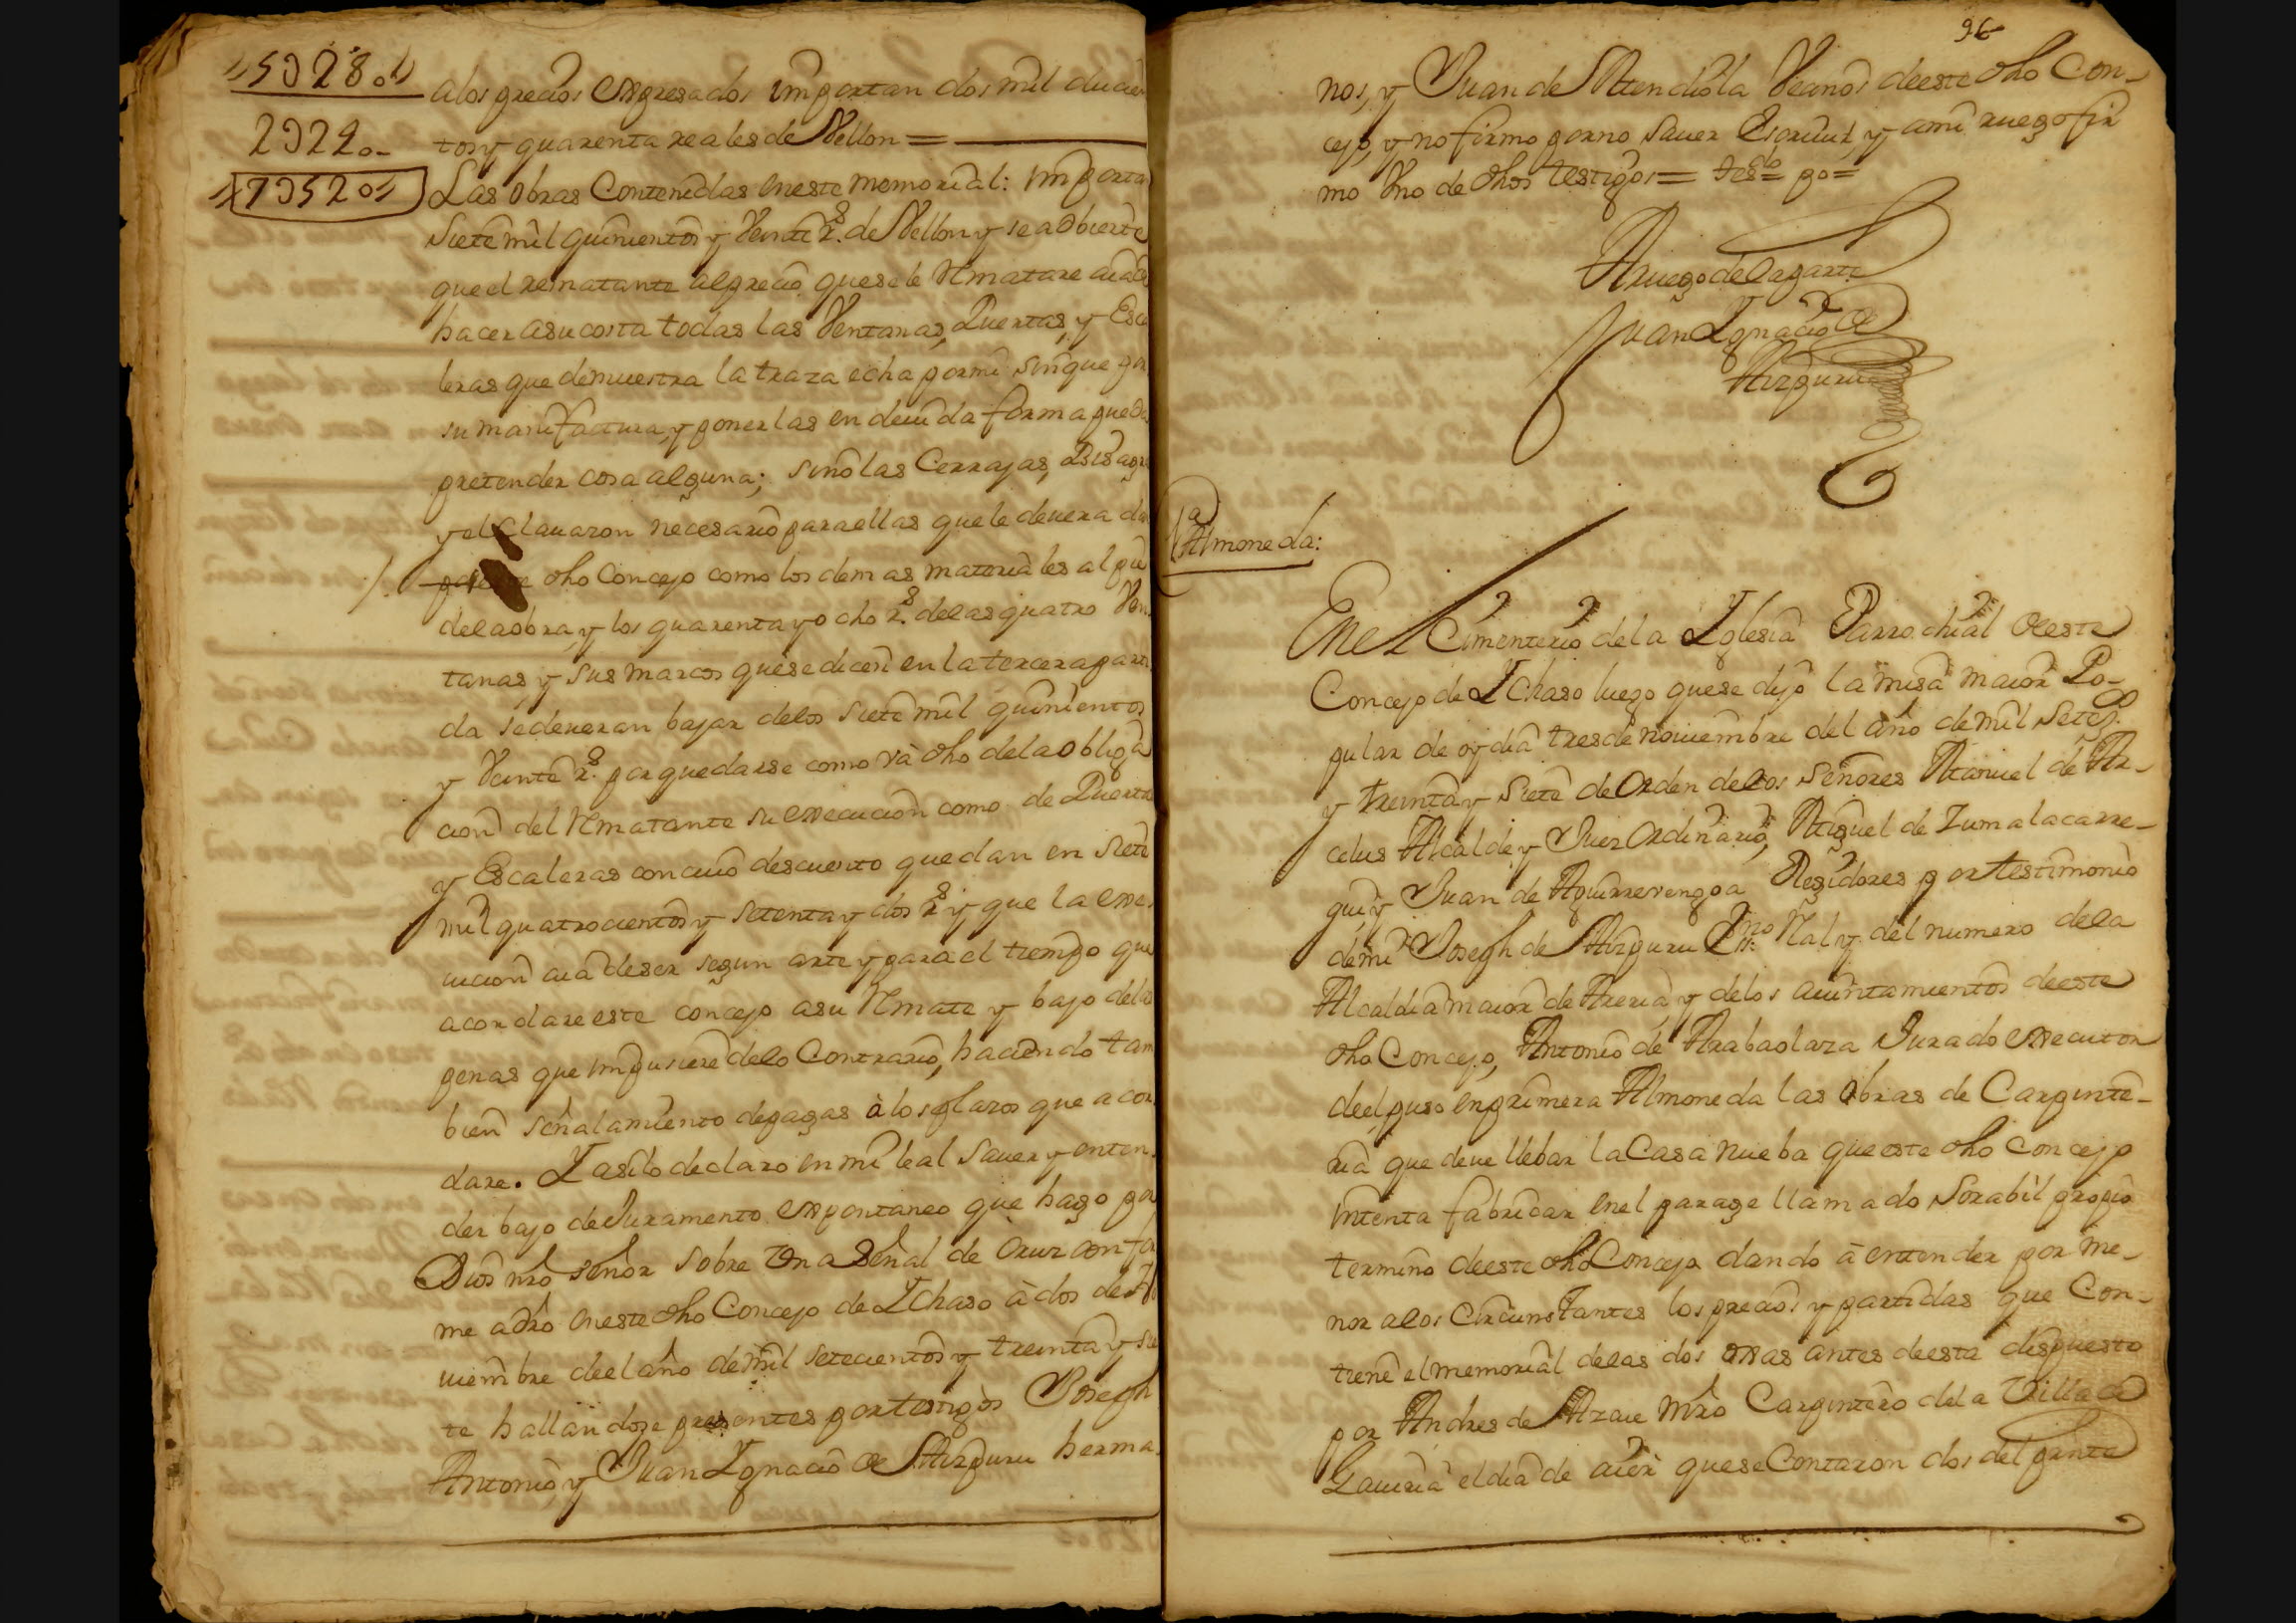 5 028 0
a los precios expresados importan dos mil ducien
2 0 2 2 0
tos y quarenta reales de Vellon =
7 0 5 2 0
Las obras Contenidas en este memorial: importa
siete mil quinientos y Veinte rs. de Vellon y se adbierte
que el rematante al precio que se le rematare a de
hacer a su costa todas las Ventanas, Puertas, y Esca
leras que demuestra la traza echa por mi sin que por
su manifactura, y ponerlas en deuida forma pueda
pretender cosa alguna; sino las Cerrajas, Bisagras
y el Clauazon necesario para ellas que le deuera dar
dho Concejo como los demas materiales al pie
de la obra, y los quarenta y ocho rs. de las quatro Ven
tanas y sus marcos que se dicen en la tercera parti
da se deueran bajar de los siete mil quinientos
y Veinte rs. por quedarse como và dho de la obliga
cion del rematante su execucion como de Puertas
y Escaleras con cuio descuento quedan en siete
mil quatrocientos y setenta y dos rs. y que la exe
cucion a de ser segun arte y para el tiempo que
acordare este concejo a su remate y bajo de las
penas que impusiere de lo Contrario, haciendo tam
bien señalamiento de pagas à los plazos que acor
dare. Y asi lo declaro en mi leal sauer y enten
der bajo de Juramento expontaneo que hago por
Dios nro señor sobre Una Señal de Cruz en for
me a dro en este dho Concejo de Ychaso à dos de No
uiembre de el año de mil setecientos y treinta y sie
te hallandose presentes por testigos Joseph
Antonio, y Juan Ygnacio de Aizpuru herma
96
nos, y Juan de Mendiola Vecinos de este dho Con-
cejo, y no firmo por no sauer Escriuir, y a mi ruego fir
mo Uno de dhos testigos=
A ruego de la parte
Juan Ygnacio de
Aizpuru
1a Almoneda:
En el Cimenterio de la Yglesia Parrochial de este
Concejo de Ychaso luego que se dijo la misa maior Po-
pular de oy dia tres de nouiembre del año de mil Setezs.
y treinta y siete de Orden de los señores Manuel de Ar-
celus Alcalde y Juez Ordinario, Miguel de Zumalacarre-
gui, y Juan de Aguirrevengoa Regidores por testimonio
de mi Joseph de Aizpuru Essno. Ral y del numero de la
Alcaldia maior de Areria, y de los aiuntamientos de este
dho Concejo, Antonio de Arabaolaza Jurado executor
de el, puso en primera Almoneda las obras de Carpinte-
ria que deue llebar la Casa nueba que este dho Concejo
intenta fabricar en el parage llamado Sorabil propio
termino de este dho Concejo dando à entender por me-
nor a los Circunstantes los precios y partidas que Con-
tiene el memorial de las dos oxas antes de esta dispuesto
por Andres de Alzaue Mro Carpintero de la Villa de
Gauiria el dia de aier que se Contaron dos del printe